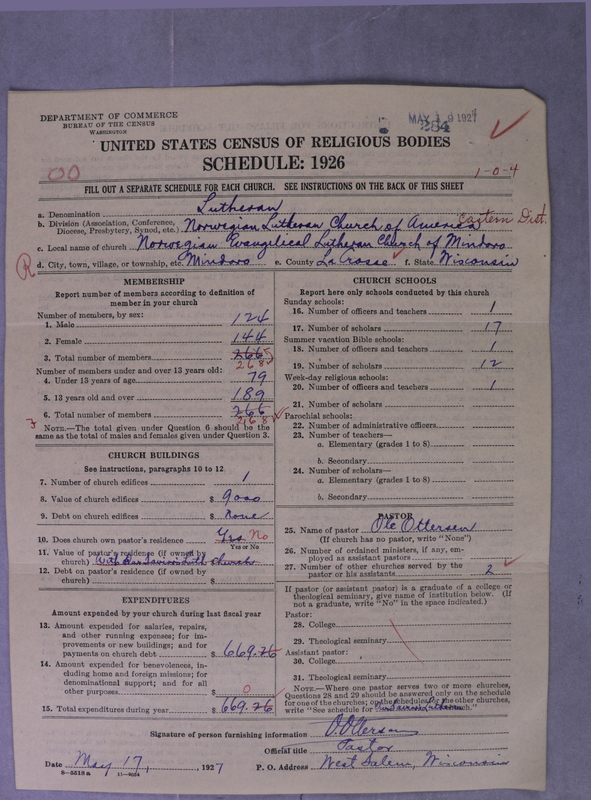 DEPARTMENT OF COMMERCE
BUREAU OF THE CENSUS
WASHINGTON
MAY 19 1927
284
UNITED STATES CENSUS OF RELIGIOUS BODIES
SCHEDULE: 1926
1-0-4
FILL OUT A SEPARATE SCHEDULE FOR EACH CHURCH. SEE INSTRUCTIONS ON THE BACK OF THIS SHEET
a. Denomination Lutheran
b. Division (Association, Conference, Diocese, Presbytery, Synod, etc.) Norwegian Lutheran Church of America Eastern Dist.
c. Local name of church Norwegian Evangelical Lutheran Church of Mindoro
R d. City, town, village, or township, etc. Mindoro e. County La Crosse f. State Wisconsin
MEMBERSHIP
Report number of members according to definition of member in your church
Number of members, by sex:
1. Male 124
2. Female 144
3. Total number of members 266 268
Number of members under and over 13 years old:
4. Under 13 years of age 79
5. 13 years old and over 189
6. Total number of members 266 268
NOTE.—The total given under Question 6 should be the same as the total of males and females given under Question 3.
CHURCH BUILDINGS
See instructions, paragraphs 10 to 12
7. Number of church edifices 1
8. Value of church edifices $ 9000
9. Debt on church edifices $ None
10. Does church own pastor's residence? Yes No
Yes or No
11. Value of pastor's residence (if owned by church) With Our Saviors Luth. Church
12. Debt on pastor's residence (if owned by church) $
EXPENDITURES
Amount expended by your church during last fiscal year
13. Amount expended for salaries, repairs, and other running expenses; for improvements or new buildings; and for payments on church debt $ 669.76
14. Amount expended for benevolences, including home and foreign missions; for denominational support; and for all other purposes $ 0
15. Total expenditures during year $ 669.76
CHURCH SCHOOLS
Report here only schools conducted by this church
Sunday schools:
16. Number of officers and teachers 1
17. Number of scholars 17
Summer vacation Bible schools:
18. Number of officers and teachers 1
19. Number of scholars 12
Week-day religious schools:
20. Number of officers and teachers 1
21. Number of scholars
Parochial schools:
22. Number of administrative officers
23. Number of teachers—
a. Elementary (grades 1 to 8)
b. Secondary
24. Number of scholars—
a. Elementary (grades 1 to 8)
b. Secondary
PASTOR
25. Name of pastor Ole Ottersen
(If church has no pastor, write "None")
26. Number of ordained ministers, if any, employed as assistant pastors
27. Number of other churches served by the pastor or his assistants 2
If pastor (or assistant pastor) is a graduate of a college or theological seminary, give name of institution below. (If not a graduate, write "No" in the space indicated.)
Pastor:
28. College
29. Theological seminary
Assistant pastor:
30. College
31. Theological seminary
NOTE.—Where one pastor serves two or more churches, Questions 28 and 29 should be answered only on the schedule for one of the churches; on the schedules for the other churches, write "See schedule for Our Saviors Lutheran church."
Signature of person furnishing information O. Ottersen
Official title Pastor
Date May 17, 1927 P. O. Address West Salem, Wisconsin
8-5518a 11-9054